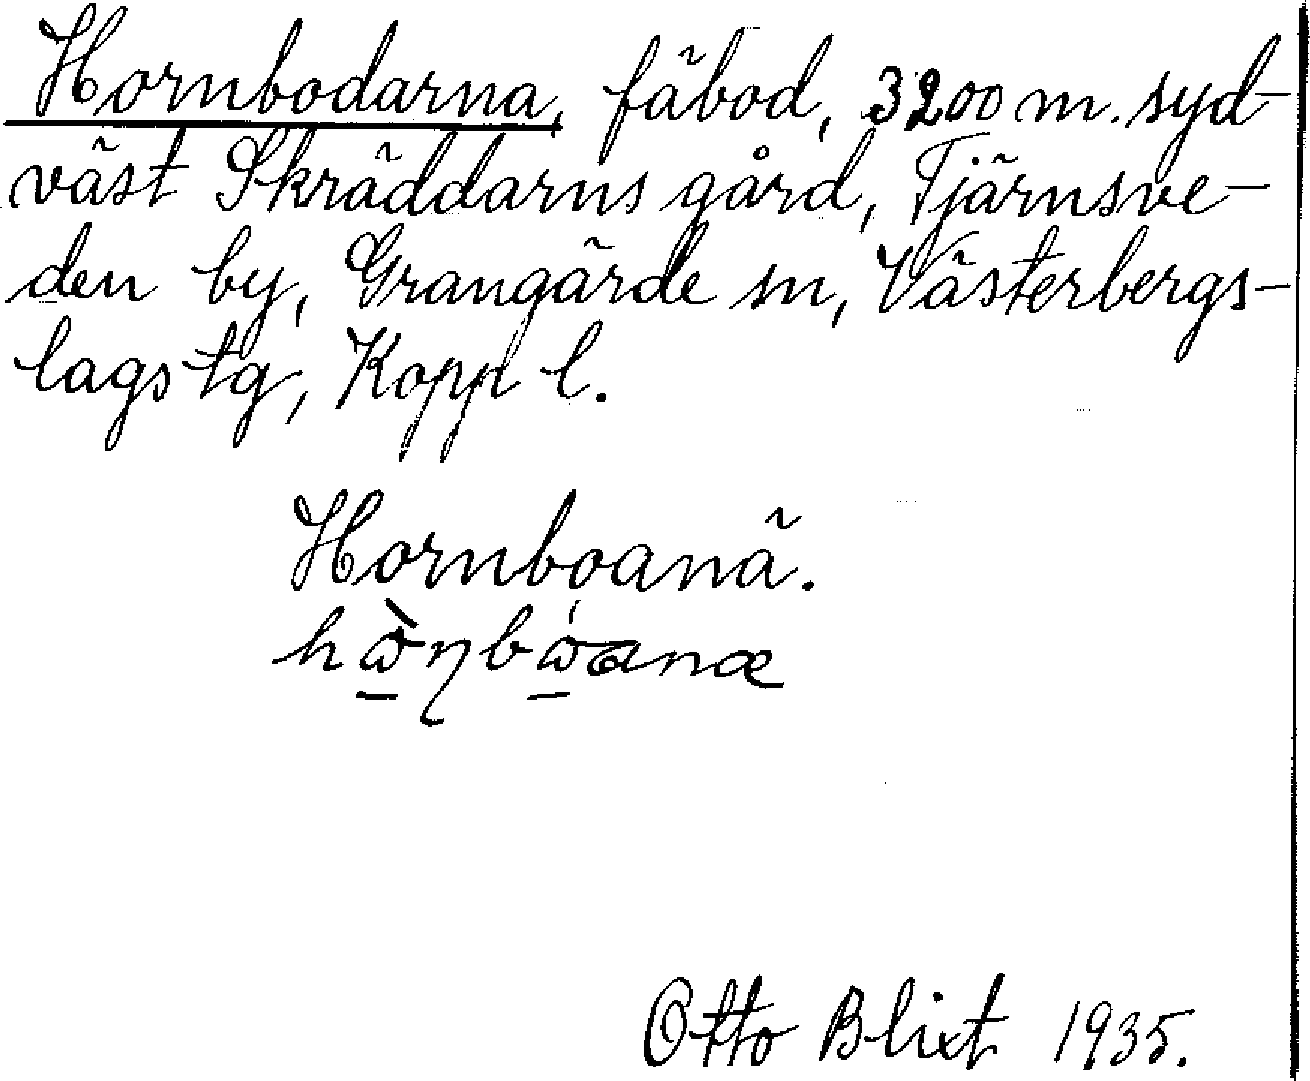 Hornbodarna, fäbod, 3200 m. syd-
väst Skräddarns gård, Tjärnsve-
den by, Grangärde sn, Västerbergs-
lags tg, Kopp l.
Hornboanä.
Otto Blixt 1935.